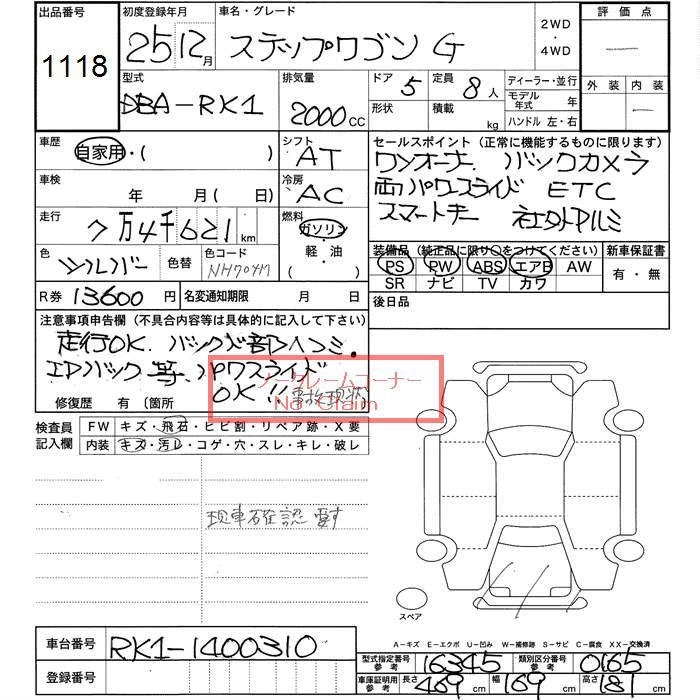 出品番号
1118
初度登録年月
25 12月
車名・グレード
ステップワゴン G
2WD
・
4WD
評価点
外装 内装
型式
DBA-RK1
排気量
2000cc
ドア 5
定員 8人
形状
積載 kg
ディーラー・並行
モデル年式 年
ハンドル 左・右
車歴
自家用・( )
シフト
AT
セールスポイント (正常に機能するものに限ります)
ワンオーナー バックカメラ
両パワースライド ETC
スマートキー 社外アルミ
車検
年 月( 日)
冷房
AC
走行
7万4千621km
燃料
ガソリン
・
軽・油
( )
色
シルバー
色替
色コード
NH704M
装備品 (純正品に限り○をつけてください)
PS PW ABS エアB AW
SR ナビ TV カワ
新車保証書
有・無
R券 13600円
名変通知期限 月 日
後日品
注意事項申告欄 (不具合内容等は具体的に記入して下さい)
走行OK. バックドア部凹ミ.
エアバック等、パワスライド
OK!! 事故現状
ノークレームコーナー
No Claim
修復歴 有〔箇所
検査員
記入欄
FW キズ・飛石・ヒビ割・リペア跡・X要
内装 キズ・汚レ・コゲ・穴・スレ・キレ・破レ
現車確認 愛す
スペア
A-キズ E-エクボ U-凹み W-補修跡 S-サビ C-腐食 XX-交換済
車台番号
RK1-1400310
登録番号
型式指定番号 参考 16345
類別区分番号 参考 0165
車庫証明用 参考
長さ 469cm
幅 169cm
高さ 181cm